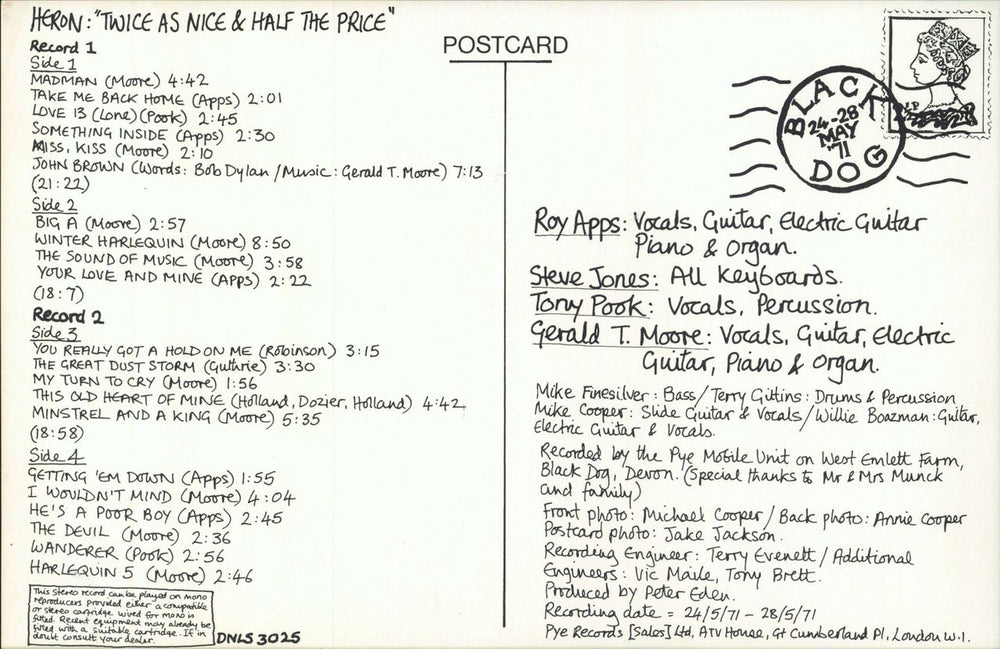 HERON: "TWICE AS NICE & HALF THE PRICE"
Record 1
Side 1
MADMAN (Moore) 4:42
TAKE ME BACK HOME (Apps) 2:01
LOVE 13 (Lone) (Pook) 2:45
SOMETHING INSIDE (Apps) 2:30
MISS, KISS (Moore) 2:10
JOHN BROWN (Words: Bob Dylan / Music: Gerald T. Moore) 7:13
(21:22)
Side 2
BIG A (Moore) 2:57
WINTER HARLEQUIN (Moore) 8:50
THE SOUND OF MUSIC (Moore) 3:58
YOUR LOVE AND MINE (Apps) 2:22
(18:7)
Record 2
Side 3
YOU REALLY GOT A HOLD ON ME (Robinson) 3:15
THE GREAT DUST STORM (Guthrie) 3:30
MY TURN TO CRY (Moore) 1:56
THIS OLD HEART OF MINE (Holland, Dozier, Holland) 4:42
MINSTREL AND A KING (Moore) 5:35
(18:58)
Side 4
GETTING 'EM DOWN (Apps) 1:55
I WOULDN'T MIND (Moore) 4:04
HE'S A POOR BOY (Apps) 2:45
THE DEVIL (Moore) 2:36
WANDERER (Pook) 2:56
HARLEQUIN 5 (Moore) 2:46
This Stereo record can be played on mono
reproducers provided either a compatible
or stereo cartridge wired for mono is
fitted. Recent equipment may already be
fitted with a suitable cartridge. If in
doubt consult your dealer.
DNLS 3025
POSTCARD
BLACK
24-28
MAY
'71
DOG
LP
Roy Apps: Vocals, Guitar, Electric Guitar
Piano & Organ.
Steve Jones: All Keyboards.
Tony Pook: Vocals, Percussion.
Gerald T. Moore: Vocals, Guitar, Electric
Guitar, Piano & Organ.
Mike Finesilver: Bass / Terry Gittins: Drums & Percussion
Mike Cooper: Slide Guitar & Vocals / Willie Boazman: Guitar,
Electric Guitar & Vocals.
Recorded by the Pye Mobile Unit on West Emlett Farm,
Black Dog, Devon. (Special thanks to Mr & Mrs Munck
and family)
Front photo: Michael Cooper / Back photo: Annie Cooper
Postcard photo: Jake Jackson.
Recording Engineer: Terry Evenett / Additional
Engineers: Vic Maile, Tony Brett.
Produced by Peter Eden.
Recording date = 24/5/71 - 28/5/71
Pye Records [Sales] Ltd, ATV House, Gt Cumberland Pl, London W.1.